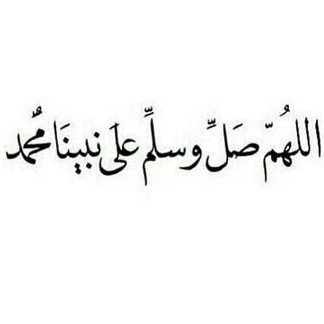 اللهُمّ صَلِّ وسلِّم علَى نبينَا مُحمد